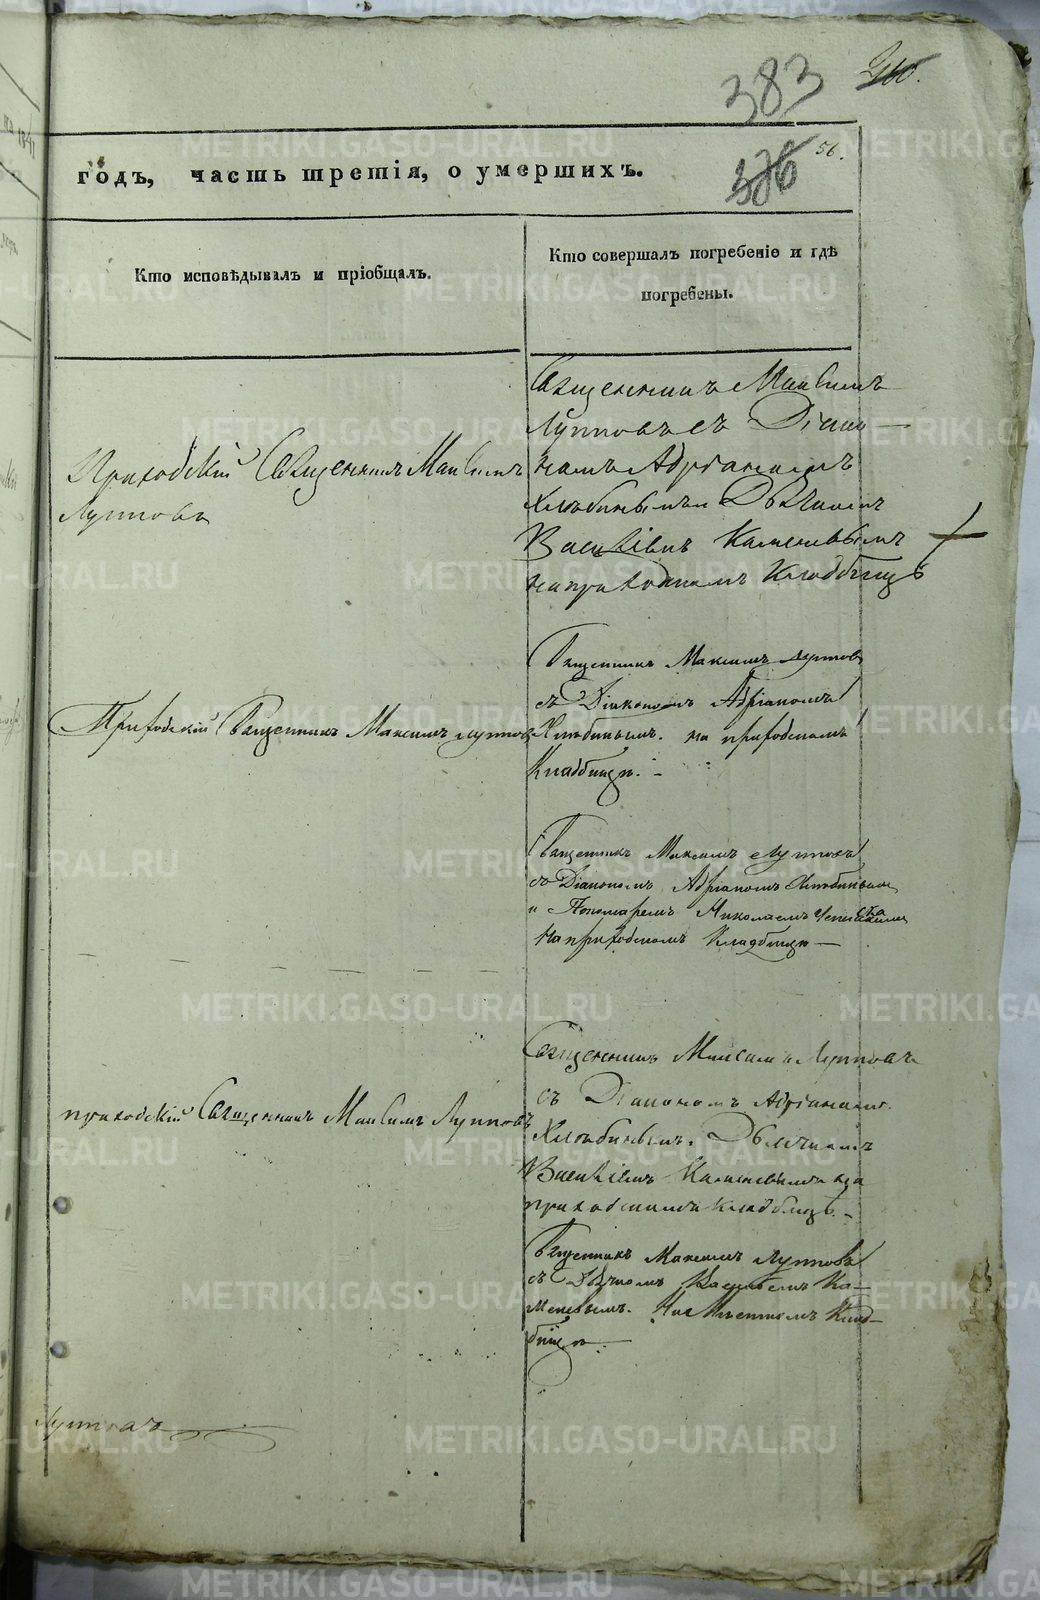 383
56.
годъ, часть третія, о умершихъ.
Кто исповѣдывалъ и пріобщалъ.
Кто совершалъ погребеніе и гдѣ
погребены.
Приходскій Священникъ Максимъ
Лупповъ
Священникъ Максимъ
Лупповъ съ Діако-
номъ Адріаномъ
Хлѣбинымъ Дьячкомъ
Василіемъ Каменевымъ
на приходскомъ Кладбищѣ
Приходскій Священникъ Максимъ Лупповъ
Священникъ Максимъ Лупповъ
съ Діакономъ Адріаномъ
Хлѣбинымъ. на приходскомъ
Кладбищѣ.
Священникъ Максимъ Лупповъ
съ Діакономъ Адріаномъ Хлѣбинымъ
и Пономаремъ Николаемъ
На приходскомъ Кладбищѣ
приходскій Священникъ Максимъ Лупповъ
Священникъ Максимъ Лупповъ
съ Діакономъ Адріаномъ
Хлѣбинымъ. Дьячкомъ
Василіемъ Каменевымъ на
приходскомъ кладбищѣ.
Священникъ Максимъ Лупповъ
съ Дьячкомъ Васильемъ Ка-
меневымъ. На Клад-
бищѣ.
Лупповъ
METRIKI.GASO-URAL.RU